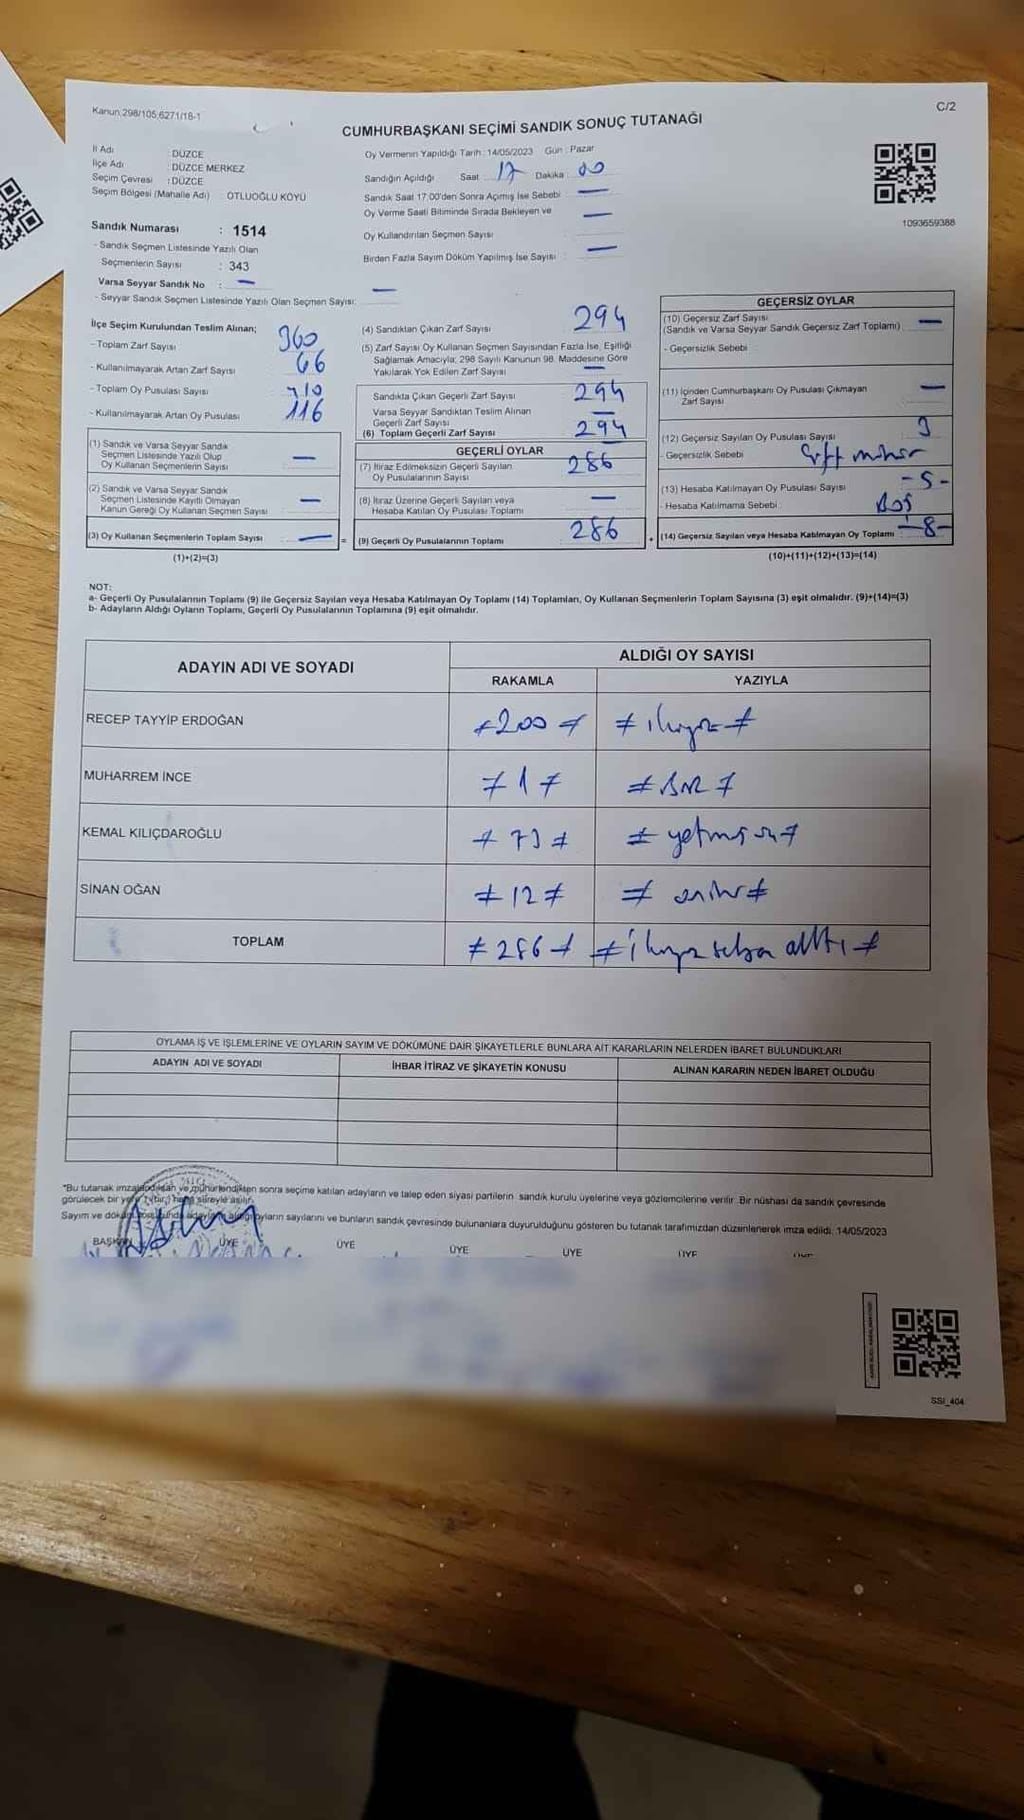 Kanun:298/105;6271/18-1
C/2
CUMHURBAŞKANI SEÇİMİ SANDIK SONUÇ TUTANAĞI
İl Adı : DÜZCE
İlçe Adı : DÜZCE MERKEZ
Seçim Çevresi : DÜZCE
Seçim Bölgesi (Mahalle Adı) : OTLUOĞLU KÖYÜ
Sandık Numarası : 1514
- Sandık Seçmen Listesinde Yazılı Olan
Seçmenlerin Sayısı : 343
Varsa Seyyar Sandık No : —
- Seyyar Sandık Seçmen Listesinde Yazılı Olan Seçmen Sayısı: —
Oy Vermenin Yapıldığı Tarih : 14/05/2023 Gün : Pazar
Sandığın Açıldığı Saat : 17 Dakika : 00
Sandık Saat 17:00'den Sonra Açılmış İse Sebebi : —
Oy Verme Saati Bitiminde Sırada Bekleyen ve —
Oy Kullandırılan Seçmen Sayısı :
Birden Fazla Sayım Döküm Yapılmış İse Sayısı : —
1093659388
İlçe Seçim Kurulundan Teslim Alınan;
- Toplam Zarf Sayısı 360
- Kullanılmayarak Artan Zarf Sayısı 66
- Toplam Oy Pusulası Sayısı 410
- Kullanılmayarak Artan Oy Pusulası 116
(1) Sandık ve Varsa Seyyar Sandık
Seçmen Listesinde Yazılı Olup
Oy Kullanan Seçmenlerin Sayısı —
(2) Sandık ve Varsa Seyyar Sandık
Seçmen Listesinde Kayıtlı Olmayan
Kanun Gereği Oy Kullanan Seçmen Sayısı —
(3) Oy Kullanan Seçmenlerin Toplam Sayısı —
(1)+(2)=(3)
(4) Sandıktan Çıkan Zarf Sayısı 294
(5) Zarf Sayısı Oy Kullanan Seçmen Sayısından Fazla İse, Eşitliği
Sağlamak Amacıyla; 298 Sayılı Kanunun 98. Maddesine Göre
Yakılarak Yok Edilen Zarf Sayısı —
Sandıkta Çıkan Geçerli Zarf Sayısı 294
Varsa Seyyar Sandıktan Teslim Alınan
Geçerli Zarf Sayısı —
(6) Toplam Geçerli Zarf Sayısı 294
GEÇERLİ OYLAR
(7) İtiraz Edilmeksizin Geçerli Sayılan
Oy Pusulalarının Sayısı 286
(8) İtiraz Üzerine Geçerli Sayılan veya
Hesaba Katılan Oy Pusulası Toplamı —
= (9) Geçerli Oy Pusulalarının Toplamı 286
GEÇERSİZ OYLAR
(10) Geçersiz Zarf Sayısı
(Sandık ve Varsa Seyyar Sandık Geçersiz Zarf Toplamı) —
- Geçersizlik Sebebi :
(11) İçinden Cumhurbaşkanı Oy Pusulası Çıkmayan
Zarf Sayısı —
(12) Geçersiz Sayılan Oy Pusulası Sayısı 3
- Geçersizlik Sebebi : Çift mühür
(13) Hesaba Katılmayan Oy Pusulası Sayısı -5-
- Hesaba Katılmama Sebebi : Boş
+ (14) Geçersiz Sayılan veya Hesaba Katılmayan Oy Toplamı -8-
(10)+(11)+(12)+(13)=(14)
NOT:
a- Geçerli Oy Pusulalarının Toplamı (9) ile Geçersiz Sayılan veya Hesaba Katılmayan Oy Toplamı (14) Toplamları, Oy Kullanan Seçmenlerin Toplam Sayısına (3) eşit olmalıdır. (9)+(14)=(3)
b- Adayların Aldığı Oyların Toplamı, Geçerli Oy Pusulalarının Toplamına (9) eşit olmalıdır.
ADAYIN ADI VE SOYADI
ALDIĞI OY SAYISI
RAKAMLA YAZIYLA
RECEP TAYYİP ERDOĞAN ≠200≠ ≠ikiyüz≠
MUHARREM İNCE ≠1≠ ≠BİR≠
KEMAL KILIÇDAROĞLU ≠73≠ ≠yetmiş üç≠
SİNAN OĞAN ≠12≠ ≠oniki≠
TOPLAM ≠286≠ ≠ikiyüz seksen altı≠
OYLAMA İŞ VE İŞLEMLERİNE VE OYLARIN SAYIM VE DÖKÜMÜNE DAİR ŞİKAYETLERLE BUNLARA AİT KARARLARIN NELERDEN İBARET BULUNDUKLARI
ADAYIN ADI VE SOYADI İHBAR İTİRAZ VE ŞİKAYETİN KONUSU ALINAN KARARIN NEDEN İBARET OLDUĞU
*Bu tutanak imzalandıktan ve mühürlendikten sonra seçime katılan adayların ve talep eden siyasi partilerin sandık kurulu üyelerine veya gözlemcilerine verilir. Bir nüshası da sandık çevresinde
görülecek bir yere 7 (bir) hafta süreyle asılır.
Sayım ve döküm sonucunda adayların aldığı oyların sayılarını ve bunların sandık çevresinde bulunanlara duyurulduğunu gösteren bu tutanak tarafımızdan düzenlenerek imza edildi. 14/05/2023
BAŞKAN ÜYE ÜYE ÜYE ÜYE ÜYE ÜYE
SSI_404